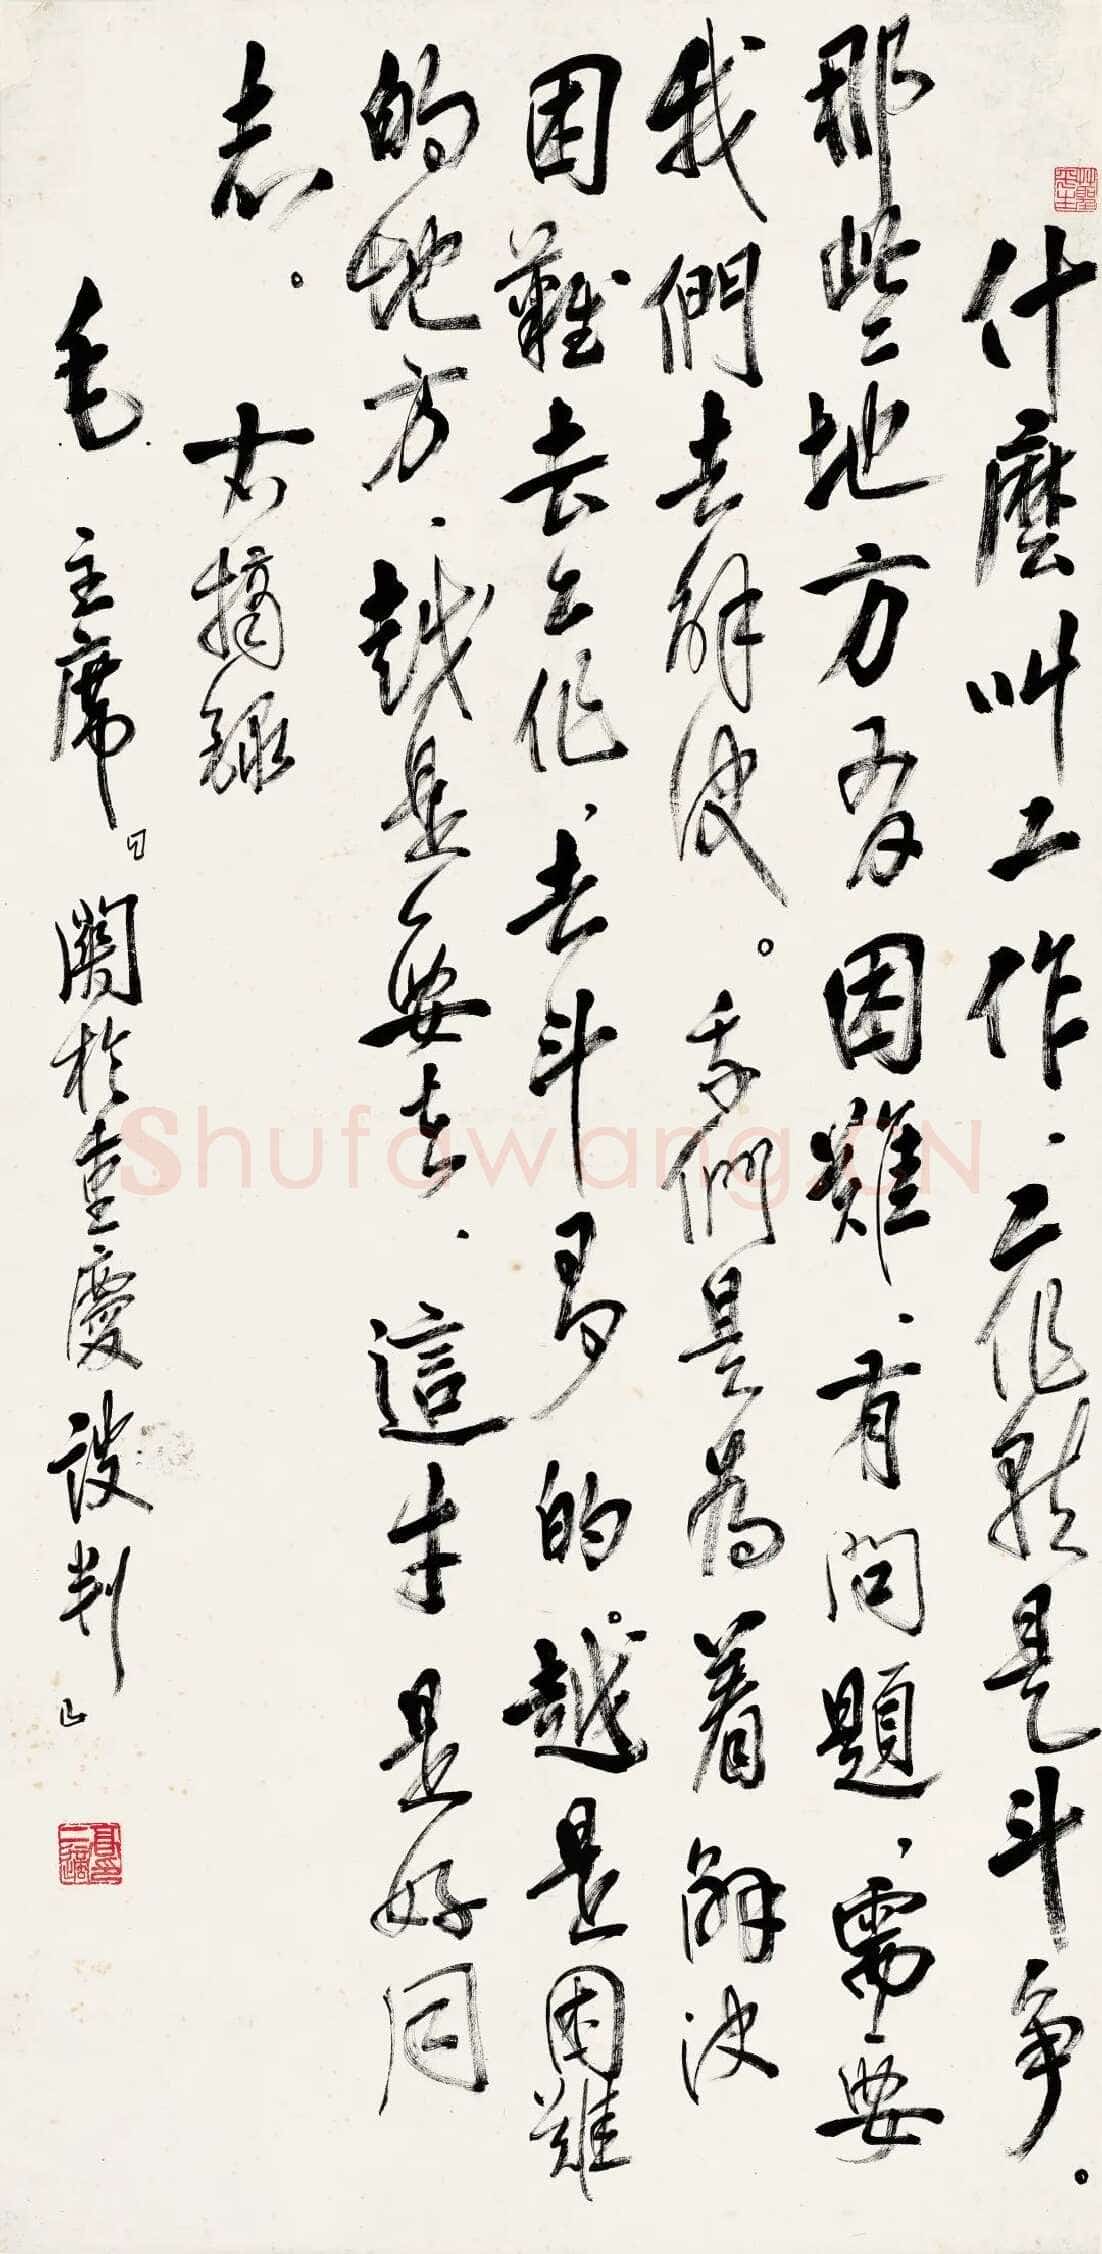 什麼叫工作、工作就是斗争。
那些地方有困難、有問題、需要
我們去解决。我們是為着解决
困難去工作、去斗争的。越是困難
的地方、越是要去、這才是好同
志。 右摘録
毛主席「關於重慶談判」
Shufawang.CN